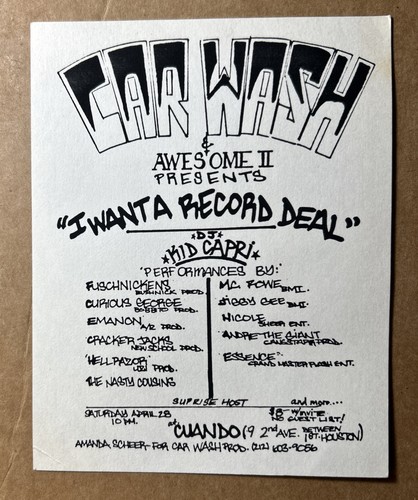 CAR WASH
&
AWESOME II
PRESENTS
"I WANT A RECORD DEAL"
DJ
KID CAPRI
"PERFORMANCES BY:"
FUSCHNICKENS
BUSHNICK PROD.
CURIOUS GEORGE
BOBBITO PROD.
EMANON
A/R PROD.
CRACKER JACKS
NEW SCHOOL PROD.
"HELLRAZOR"
UZI PROD.
THE NASTY COUSINS
M.C. ROWE BMI.
SIGGY GEE BMI.
NICOLE
SHEER ENT.
"ANDRE THE GIANT
GANGSTARR PROD.
ESSENCE"
GRAND MASTER FLASH ENT.
SUPRISE HOST and more....
SATURDAY APRIL 28
10 P.M.
$8- W/INVITE
NO GUEST LIST!
at CUANDO (9 2nd AVE. BETWEEN 1ST. HOUSTON)
AMANDA SCHEER - FOR CAR WASH PROD. (212) 603-9056